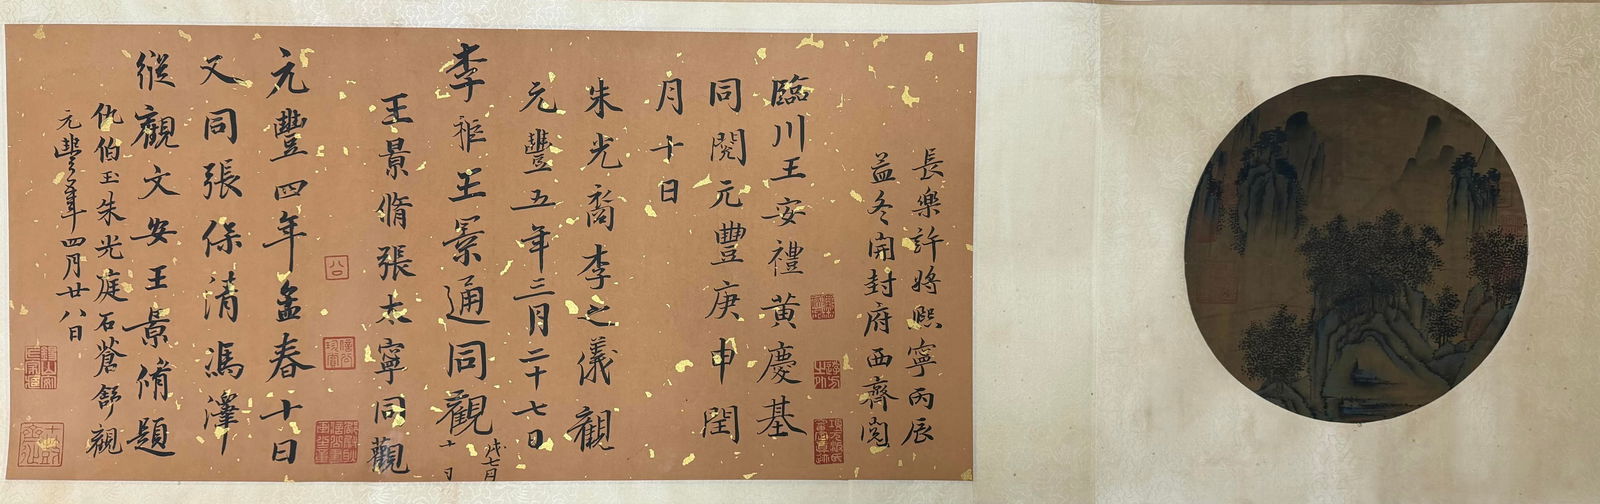 長樂許將熙寧丙辰
益冬開封府西齋閱
臨川王安禮黃慶基
同閱元豐庚申閏
月十日
朱光裔李之儀觀
元豐五年三月二十七日
李祉王景通同觀
戌七月
十
王景脩張太寧同觀
元豐四年孟春十日
又同張保清馮澤
縱觀文安王景脩題
仇伯玉朱光庭石蒼舒觀
元豐年四月廿八日